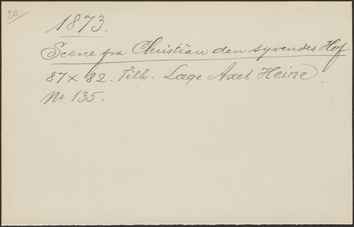 1873.
Scene fra Christian den syvendes Hof
87 x 82. Tilh. Læge Axel Heine.
No 135.